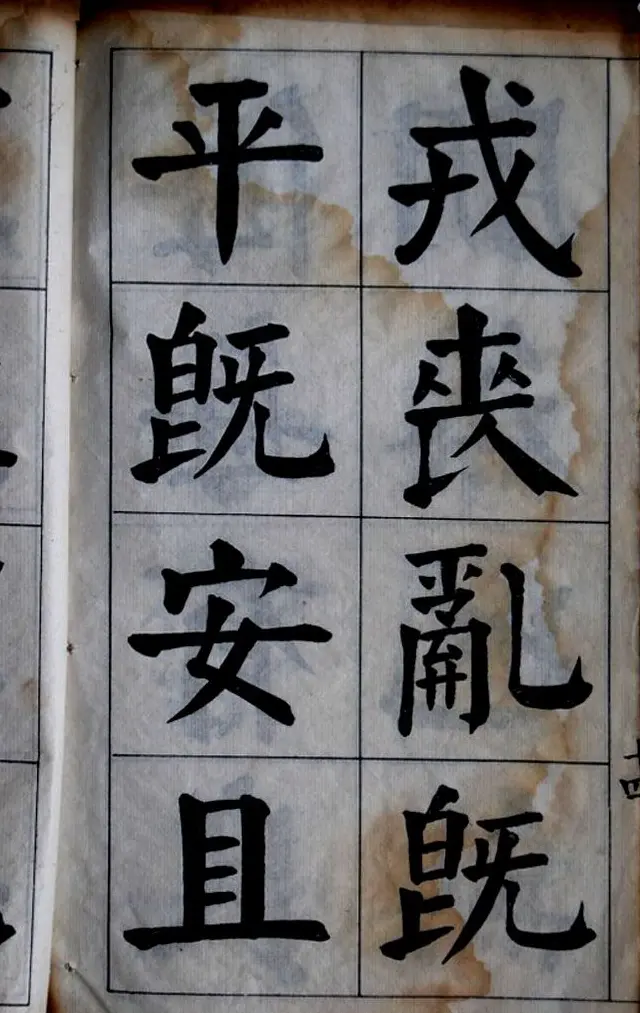 戎喪亂既
平既安且